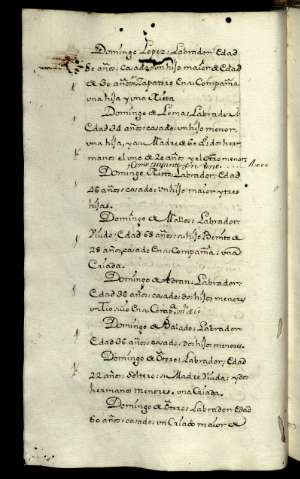 Domingo Lopez: Labrador: Edad
80 años: casado un hijo maior de Edad
de 30 años Zapatero En su Compañia
una hija y una Nieta
Domingo de Lema: Labrador
Edad 34 años: casado: un hijo menor
una hija, y su Madre de 60 dos her
manos: el uno de 20 años y el otro menor
Domingo Labrador: Edad
46 años: casado: un hijo maior y tres
hijas.
Domingo de Mallos: Labrador:
Viudo: Edad 68 años: su hijo Benito de
28 años, casado En su Compañia: una
Criada.
Domingo de Labrador:
Edad 36 años: casado: dos hijos menores
un Tio suio En su Comp.ª
Domingo de Labrador:
Edad 36 años: casado: dos hijos menores.
Domingo de Labrador: Edad
22 años: soltero: su Madre Viuda: y dos
hermanos menores, una Criada.
Domingo de Labrador Edad
60 años: casado: un Criado maior de